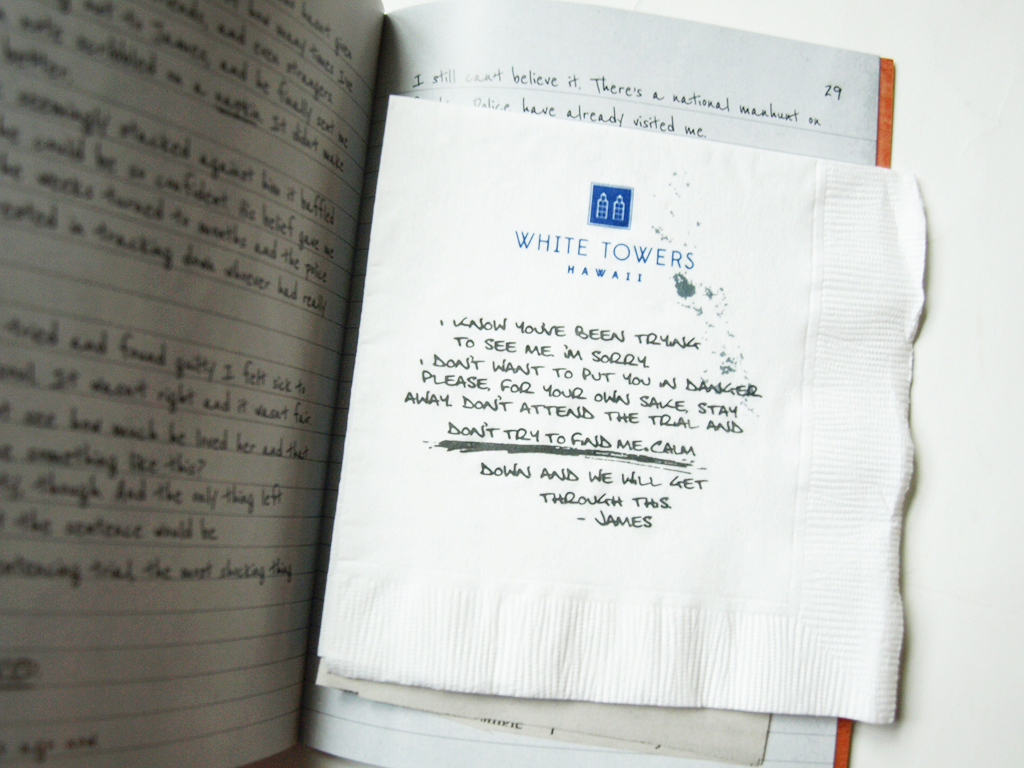 heart given
friends, and even strangers
not its James, and he finally sent me
note scribbled on a napkin. It didnt make
better.
seemingly stacked against him it baffled
he could be so confident. His belief gave me
the weeks turned to months and the police
in tracking down whoever had really
tried and found guilty I felt sick to
It wasn't right and it wasnt fair
see how much he loved her and that
something like this?
though. And the only thing left
the sentence would be
sentencing trial, the most shocking thing
ago and
29
I still can't believe it. There's a national manhunt on
Police have already visited me.
WHITE TOWERS
HAWAII
I KNOW YOU'VE BEEN TRYING
TO SEE ME. I'M SORRY
I DON'T WANT TO PUT YOU IN DANGER
PLEASE, FOR YOUR OWN SAKE, STAY
AWAY. DON'T ATTEND THE TRIAL AND
DON'T TRY TO FIND ME. CALM
DOWN AND WE WILL GET
THROUGH THIS.
- JAMES